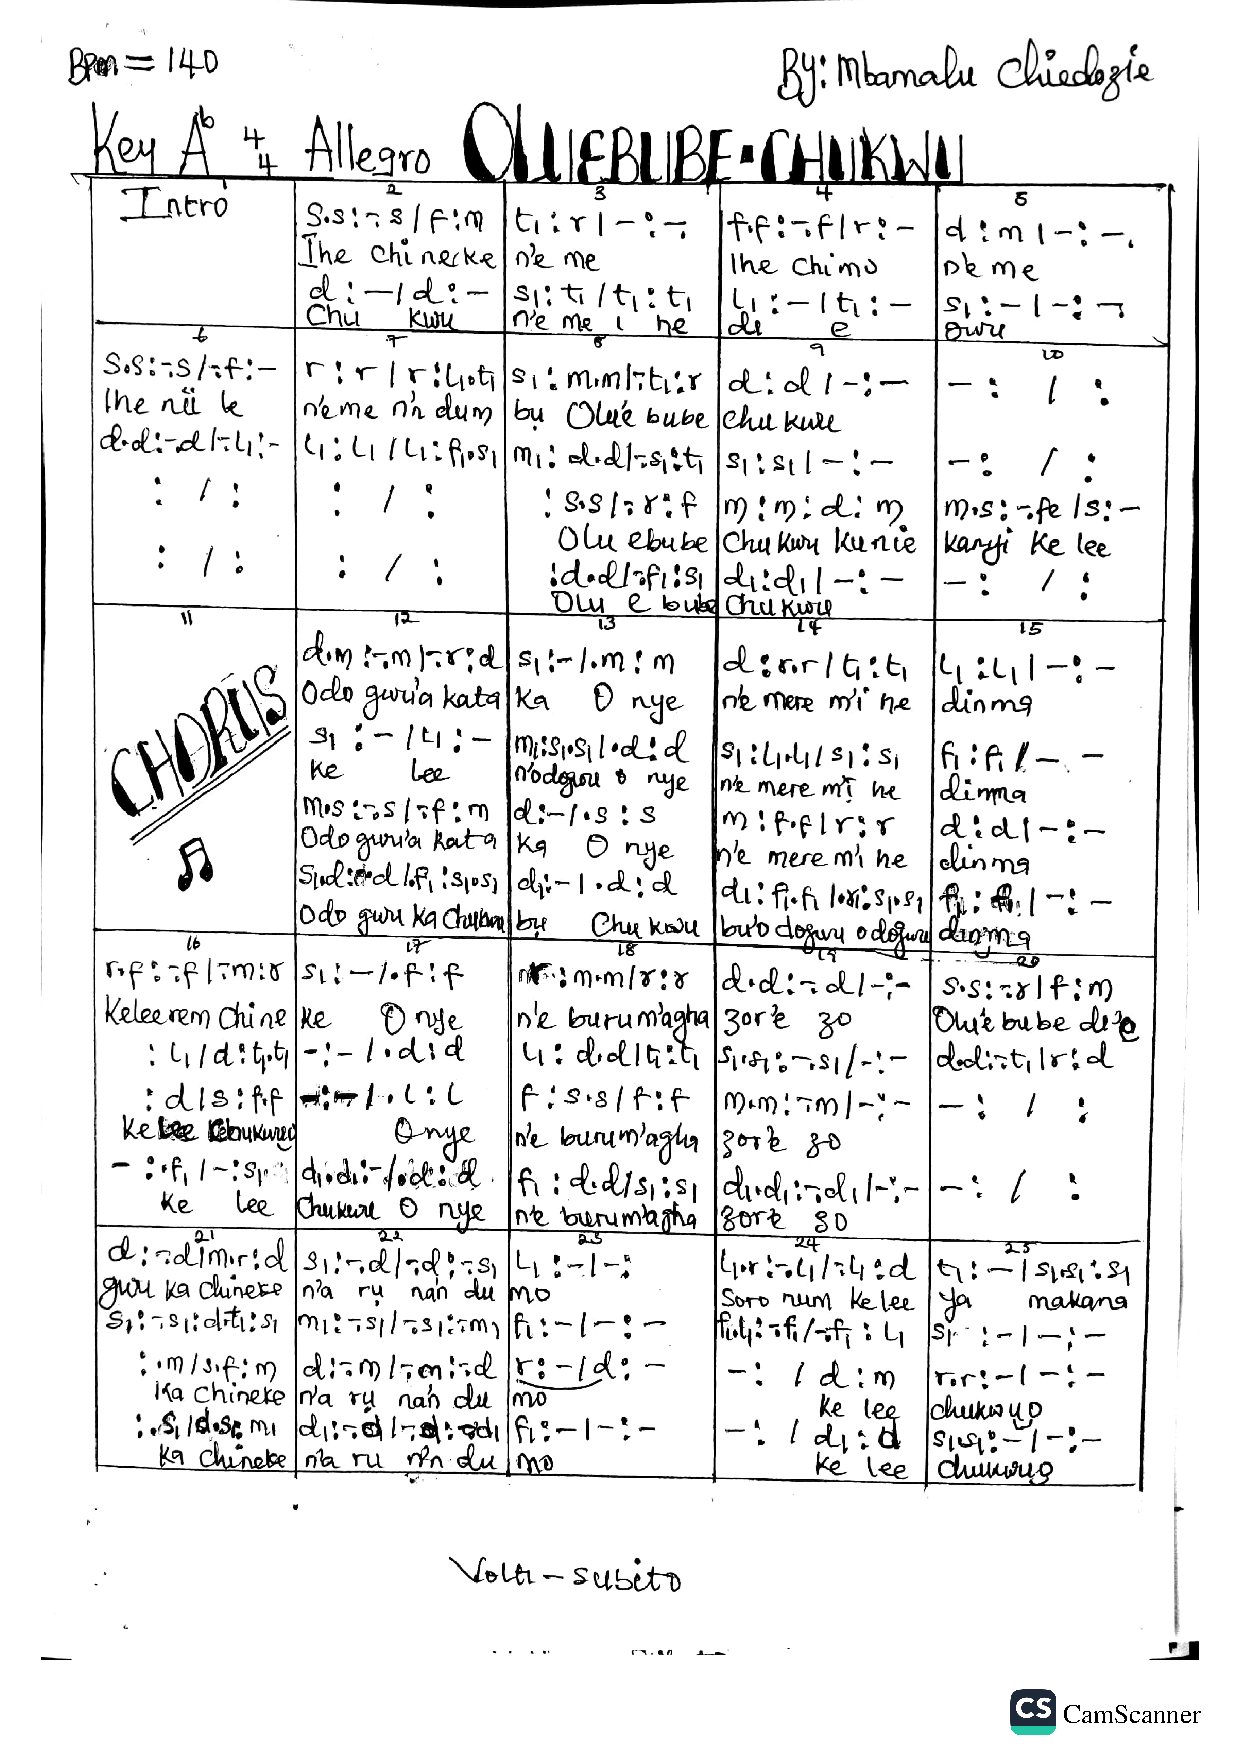 Bpm = 140
By: Mbamalu Chiedozie
Key Ab 4/4 Allegro OLUEBUBE-CHUKWU
Intro
2
s.s:-.s/f:m
Ihe Chineke
d:-/d:-
Chu kwu
3
t₁:r|-:-.
n'e me
s₁:t₁/t₁:t₁
n'e me i he
4
f.f:-.f|r:-
Ihe Chimo
l₁:-|t₁:-
di e
5
d:m|-:-.
n'e me
s₁:-|-:-.
owu
6
s.s:-.s/-.f:-
Ihe nii le
d.d:-.d/-.l₁:-
: / :
: / :
7
r:r/r:l₁.t₁
n'eme n'n dum
l₁:l₁/l₁:f₁.s₁
: / :
: / :
8
s₁:m.m|-.t₁:r
bụ Olu'e bube
m₁:d.d/-.s₁:t₁
:s.s/-.r:f
Olu ebube
:d.d/-.f₁:s₁
Olu e bube
9
d:d/-:-
Chu kwu
s₁:s₁|-:-
m:m:d:m
Chu kwu ku nie
d₁:d₁|-:-
Chu kwu
10
-: / :
-: / :
m.s:-.fe/s:-
kanyi ke lee
-: / :
11
CHORUS
12
d.m:-.m|-.r:d
Odo gwu'a kata
s₁:-/l₁:-
ke lee
m.s:-.s/-.f:m
Odo gwu'a kata
Odo gwu ka Chukwu
13
s₁:-/.m:m
ka O nye
m₁:s₁.s₁/.d:d
n'odogwu o nye
d:-/.s:s
ka O nye
d₁:-|.d:d
bụ Chu kwu
14
d:r.r/t₁:t₁
n'e mere m'i he
s₁:l₁.l₁/s₁:s₁
n'e mere m'i he
m:f.f|r:r
n'e mere m'i he
bu'o dogwu o dogwu
15
l₁:l₁|-:-
dinma
f₁:f₁/- -
dinma
d:d|-:-
dinma
dinma
16
r.f:-.f|-.m:r
Keleerem Chine
:l₁/d:t₁.t₁
:d/s:f.f
Ke lee
-:.f₁/-:s₁
ke lee
17
s₁:-/.f:f
ke O nye
-:-/.d:d
O nye
d₁.d₁:-/.d:d
Chukwu O nye
18
:m.m/r:r
n'e burum'agha
l₁:d.d/t₁:t₁
f:s.s/f:f
n'e burum'agha
f₁:d.d/s₁:s₁
n'e burum'agha
19
d.d:-.d/-:-
zor'e zo
s₁.s₁:-.s₁/-:-
m.m:-.m/-:-
zor'e zo
d₁.d₁:-.d₁/-:-
zor'e zo
20
s.s:-.r|f:m
Olu'e bube di'e
d.d:-.t₁/r:d
-: / :
-: / :
21
d:-.d/m.r:d
gwu ka chineke
s₁:-.s₁:d.t₁:s₁
:.m/s.f:m
ka chineke
ka chineke
22
s₁:-.d/-.d:-.s₁
n'a rụ nan du
m₁:-.s₁/-.s₁:-.m₁
d:-.m/-.m:-.d
n'a rụ nan du
n'a ru n'n du
23
l₁:-|-:
mo
f₁:-|-:-
r:-/d:-
mo
f₁:-|-:-
mo
24
l₁.r:-.l₁/-.l₁:d
Soro num ke lee
f₁.l₁:-.f₁/-.f₁:l₁
-: / d:m
ke lee
-: / d₁:d
ke lee
25
t₁:-|s₁.s₁:s₁
ya makana
s₁:-|-:-
r.r:-|-:-
chukwuo
s₁.s₁:-|-:-
Volti-subito
CS CamScanner